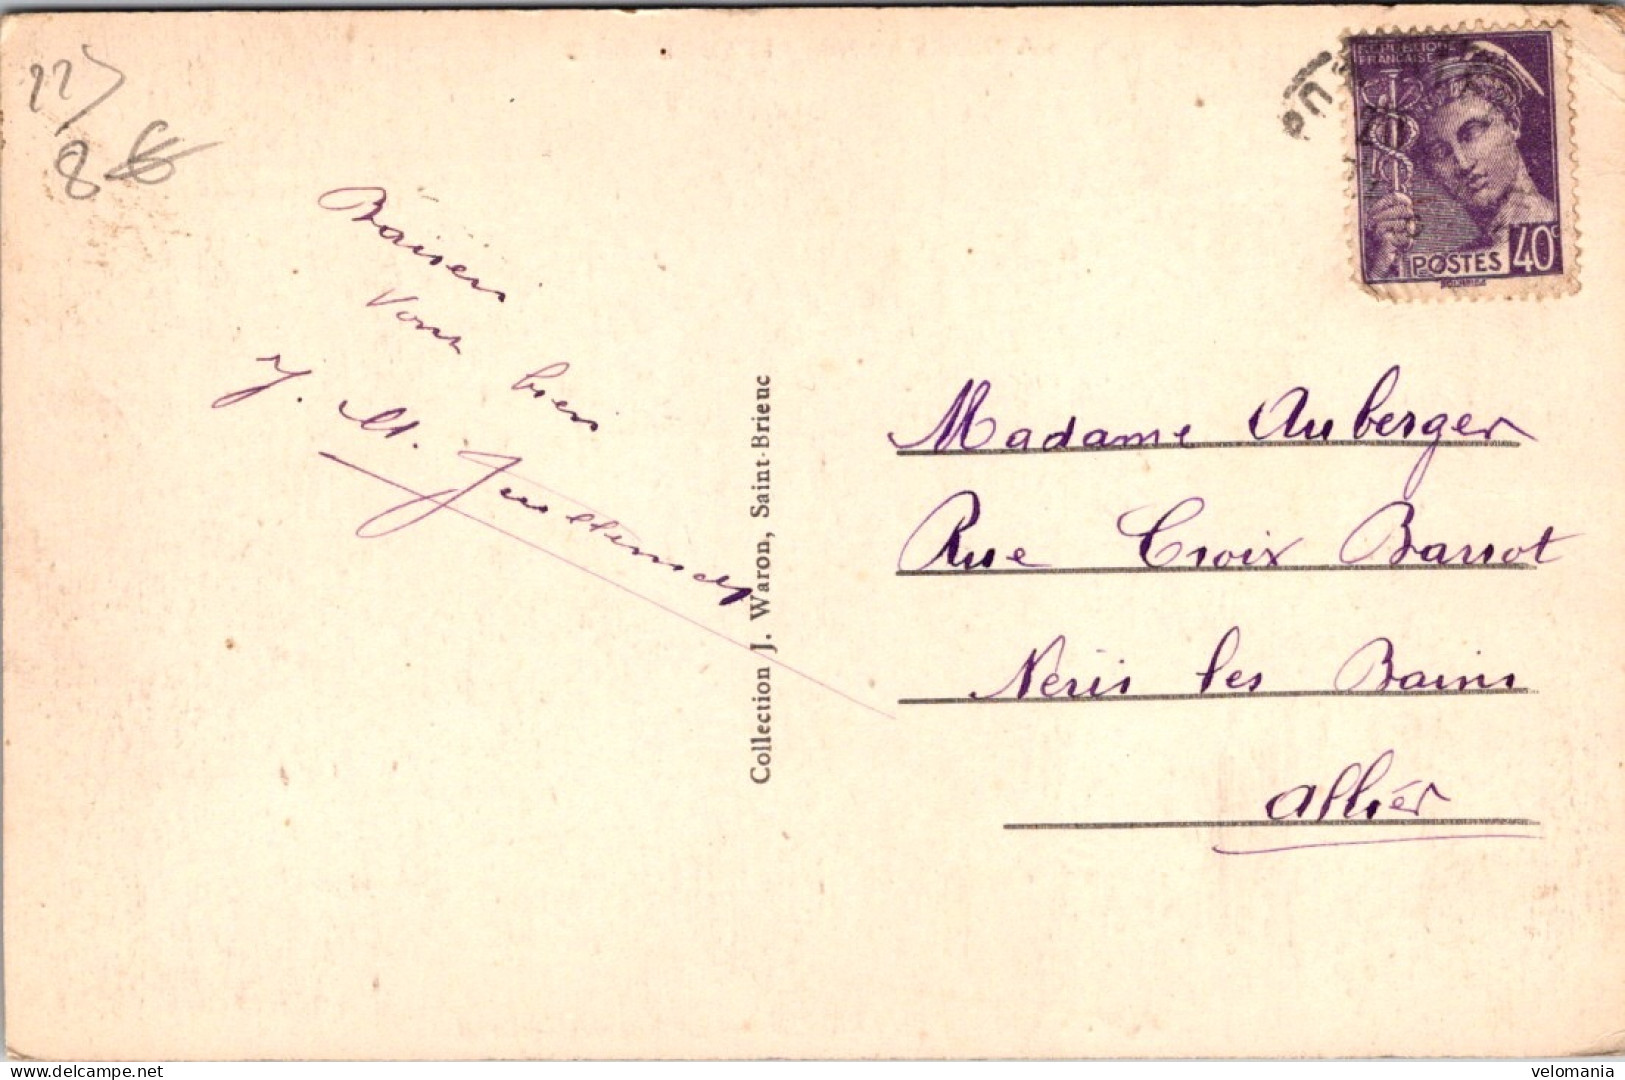 22)
8
Baisers
Vont bien
J. M.
Collection J. Waron, Saint-Brieuc
REPUBLIQUE
FRANCAISE
POSTES 40c
Madame Auberger
Rue Croix Barrot
Neris les Bains
Allier
delcampe.net
velomania